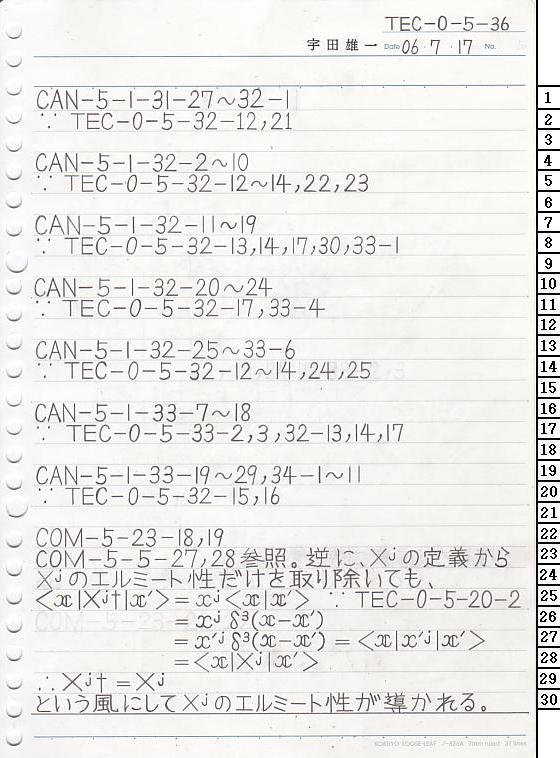 TEC-0-5-36
宇田雄一 Date 06・7・17 No.
CAN-5-1-31-27～32-1
∵ TEC-0-5-32-12,21
CAN-5-1-32-2～10
∵ TEC-0-5-32-12～14,22,23
CAN-5-1-32-11～19
∵ TEC-0-5-32-13,14,17,30,33-1
CAN-5-1-32-20～24
∵ TEC-0-5-32-17,33-4
CAN-5-1-32-25～33-6
∵ TEC-0-5-32-12～14,24,25
CAN-5-1-33-7～18
∵ TEC-0-5-33-2,3,32-13,14,17
CAN-5-1-33-19～29,34-1～11
∵ TEC-0-5-32-15,16
COM-5-23-18,19
COM-5-5-27,28参照。逆に、Xʲの定義から
Xʲのエルミート性だけを取り除いても、
<x|Xʲ†|x'> = xʲ<x|x'> ∵ TEC-0-5-20-2
= xʲ δ³(x-x')
= x'ʲ δ³(x-x') = <x|x'ʲ|x'>
= <x|Xʲ|x'>
∴ Xʲ† = Xʲ
という風にしてXʲのエルミート性が導かれる。
KOKUYO LOOSE-LEAF ノ-836A 7mm ruled 31 lines
1
2
3
4
5
6
7
8
9
10
11
12
13
14
15
16
17
18
19
20
21
22
23
24
25
26
27
28
29
30